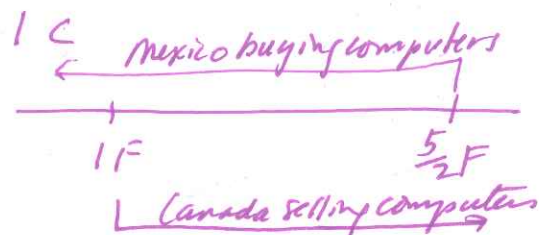 1 C
Mexico buying computers
1F 5/2F
Canada selling computers